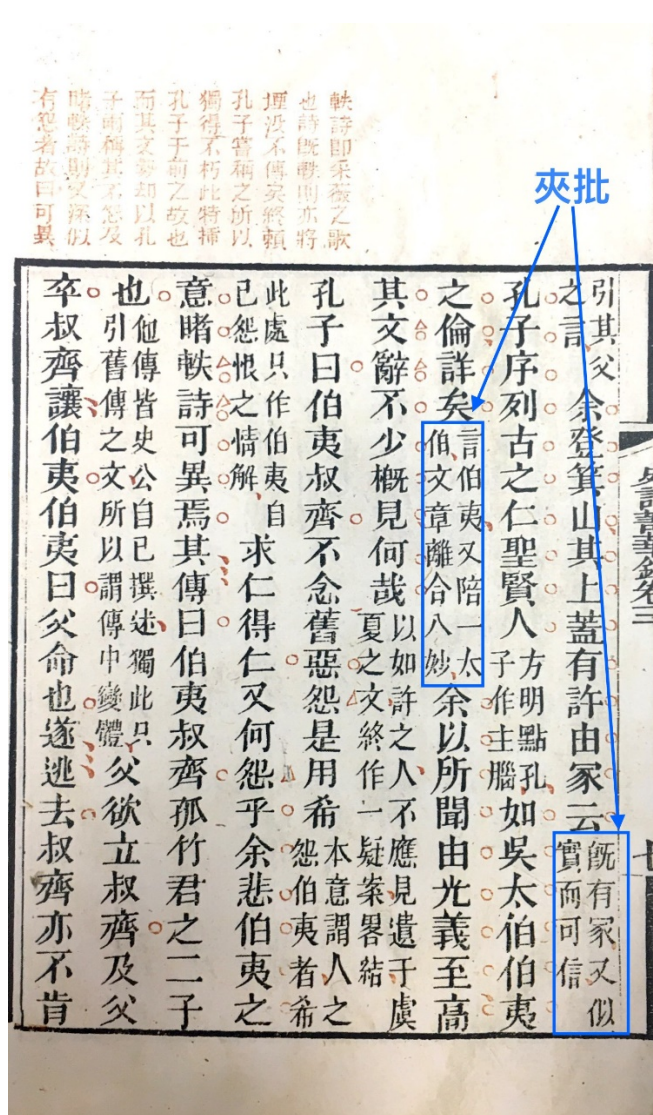 夾批
軼詩即采薇之歌
也詩既軼則亦將
堙没不傳矣終頼
孔子嘗稱之所以
獨得不朽此特揷
孔子于前之故也
而其文勢却以孔
子兩稱其不怨及
睹軼詩則又深似
有怨者故曰可異
史記菁華錄卷三
七
引其父之言余登箕山其上蓋有許由冢云既有冢又似實而可信
孔子序列古之仁聖賢人方明點孔子作主腦如吳太伯伯夷
之倫詳矣言伯夷又陪一太伯文章離合入妙余以所聞由光義至高
其文辭不少概見何哉以如許之人不應見遺于虞夏之文終作一疑案畧結
孔子曰伯夷叔齊不念舊惡怨是用希本意謂人之怨伯夷者希
此處只作伯夷自已怨恨之情解求仁得仁又何怨乎余悲伯夷之
意睹軼詩可異焉其傳曰伯夷叔齊孤竹君之二子
也他傳皆史公自已撰述獨此只引舊傳之文所以謂傳中變體父欲立叔齊及父
卒叔齊讓伯夷伯夷曰父命也遂逃去叔齊亦不肯